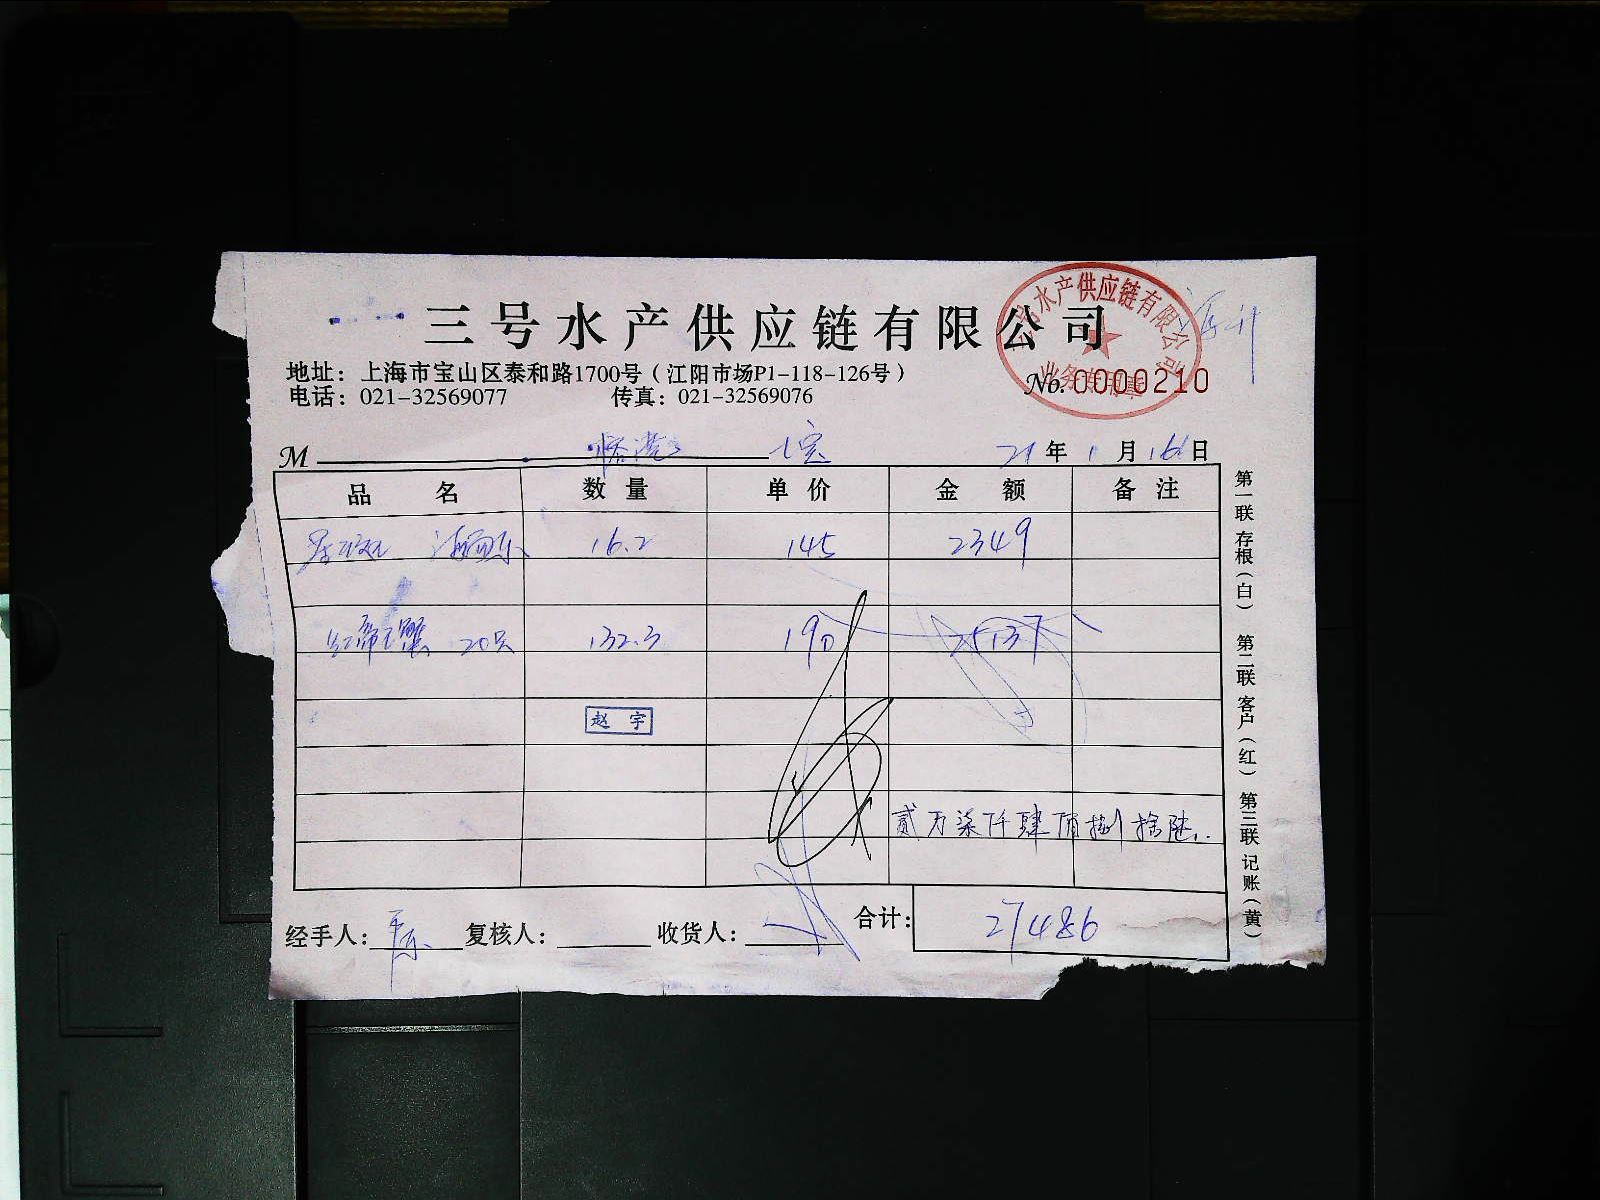 三号水产供应链有限公司
水产供应链有限公司
业务专用章
地址：上海市宝山区泰和路1700号（江阳市场P1-118-126号）
No. 0000210
电话：021-32569077 传真：021-32569076
M 七宝 21 年 1 月 16 日
品 名 数 量 单 价 金 额 备 注
16.2 145 2349
红帝王蟹 20只 132.3 190 25137
赵 宇
贰万柒仟肆佰捌拾陆
经手人： 复核人： 收货人： 合计： 27486
第一联 存根（白） 第二联 客户（红） 第三联 记账（黄）